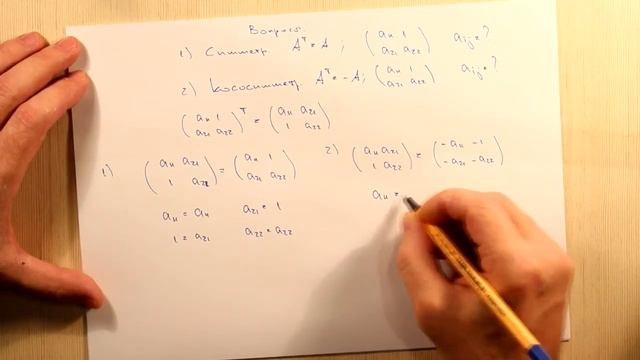 Вопросы:
1) Симметр. Aᵀ = A ; (a₁₁ 1 / a₂₁ a₂₂) aᵢⱼ = ?
2) Кососимметр. Aᵀ = -A; (a₁₁ 1 / a₂₁ a₂₂) aᵢⱼ = ?
(a₁₁ 1 / a₂₁ a₂₂)ᵀ = (a₁₁ a₂₁ / 1 a₂₂)
1) (a₁₁ a₂₁ / 1 a₂₂) = (a₁₁ 1 / a₂₁ a₂₂)
a₁₁ = a₁₁ a₂₁ = 1
1 = a₂₁ a₂₂ = a₂₂
2) (a₁₁ a₂₁ / 1 a₂₂) = (-a₁₁ -1 / -a₂₁ -a₂₂)
a₁₁ =